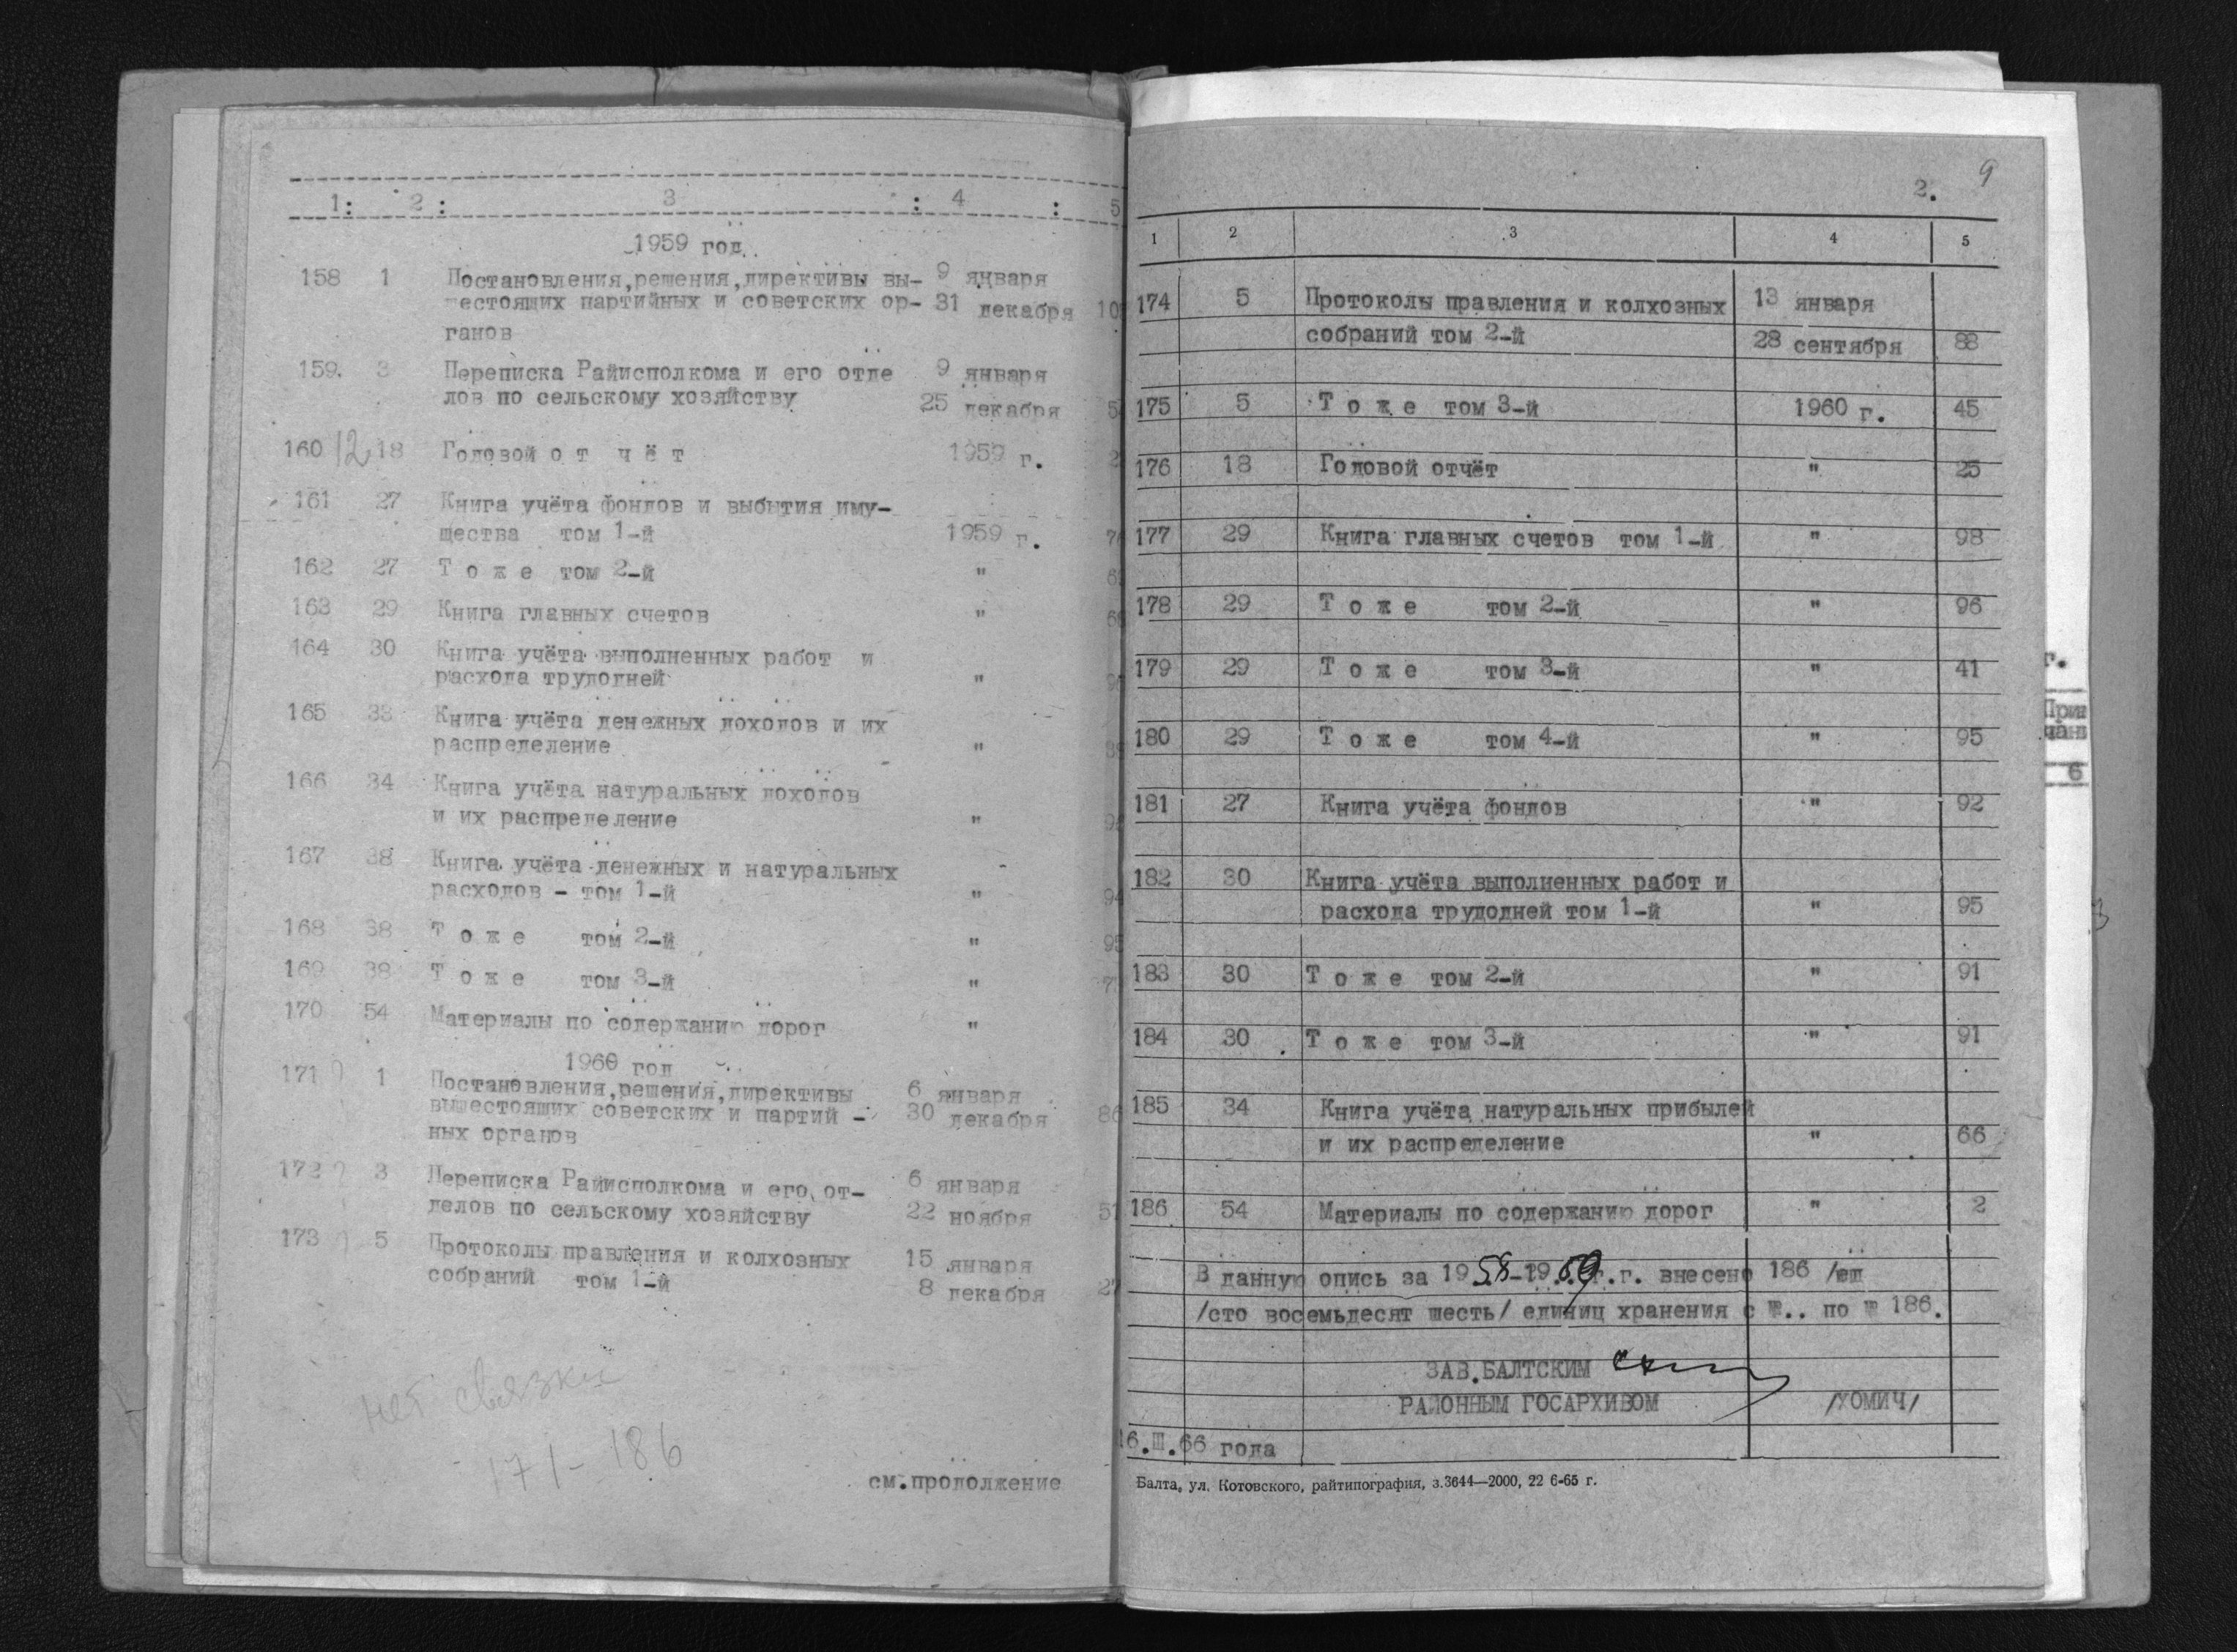 1: 2 : 3 : 4 : 5
1959 год
158 1 Постановления,решения,директивы вы- 9 января
шестоящих партийных и советских ор- 31 декабря
ганов
159. 3 Переписка Райисполкома и его отде 9 января
лов по сельскому хозяйству 25 декабря
160 12 18 Годовой о т ч ё т 1959 г.
161 27 Книга учёта фондов и выбытия иму-
щества том 1-й 1959 г.
162 27 Т о ж е том 2-й "
163 29 Книга главных счетов "
164 30 Книга учёта выполненных работ и
расхода трудодней "
165 33 Книга учёта денежных доходов и их
распределение "
166 34 Книга учёта натуральных доходов
и их распределение "
167 38 Книга учёта денежных и натуральных
расходов - том 1-й "
168 38 Т о ж е том 2-й "
169 38 Т о ж е том 3-й "
170 54 Материалы по содержанию дорог "
1960 год
171 1 Постановления,решения,директивы 6 января
вышестоящих советских и партий - 30 декабря 86
ных органов
172 3 Переписка Райисполкома и его от- 6 января
делов по сельскому хозяйству 22 ноября 51
173 5 Протоколы правления и колхозных 15 января
собраний том 1-й 8 декабря
нет связки
171-186
см.продолжение
9
2.
1 2 3 4 5
174 5 Протоколы правления и колхозных 13 января
собраний том 2-й 28 сентября 88
175 5 Т о ж е том 3-й 1960 г. 45
176 18 Годовой отчёт " 25
177 29 Книга главных счетов том 1-й " 98
178 29 Т о ж е том 2-й " 96
179 29 Т о ж е том 3-й " 41
180 29 Т о ж е том 4-й " 95
181 27 Книга учёта фондов " 92
182 30 Книга учёта выполненных работ и
расхода трудодней том 1-й " 95
183 30 Т о ж е том 2-й " 91
184 30 Т о ж е том 3-й " 91
185 34 Книга учёта натуральных прибылей
и их распределение " 66
186 54 Материалы по содержанию дорог " 2
В данную опись за 1958-19 г.г. внесено 186
/сто восемьдесят шесть/ единиц хранения с по 186.
ЗАВ.БАЛТСКИМ
РАЙОННЫМ ГОСАРХИВОМ /ХОМИЧ/
16.III.66 года
Балта, ул. Котовского, райтипография, з.3644—2000, 22 6-65 г.
г.
6